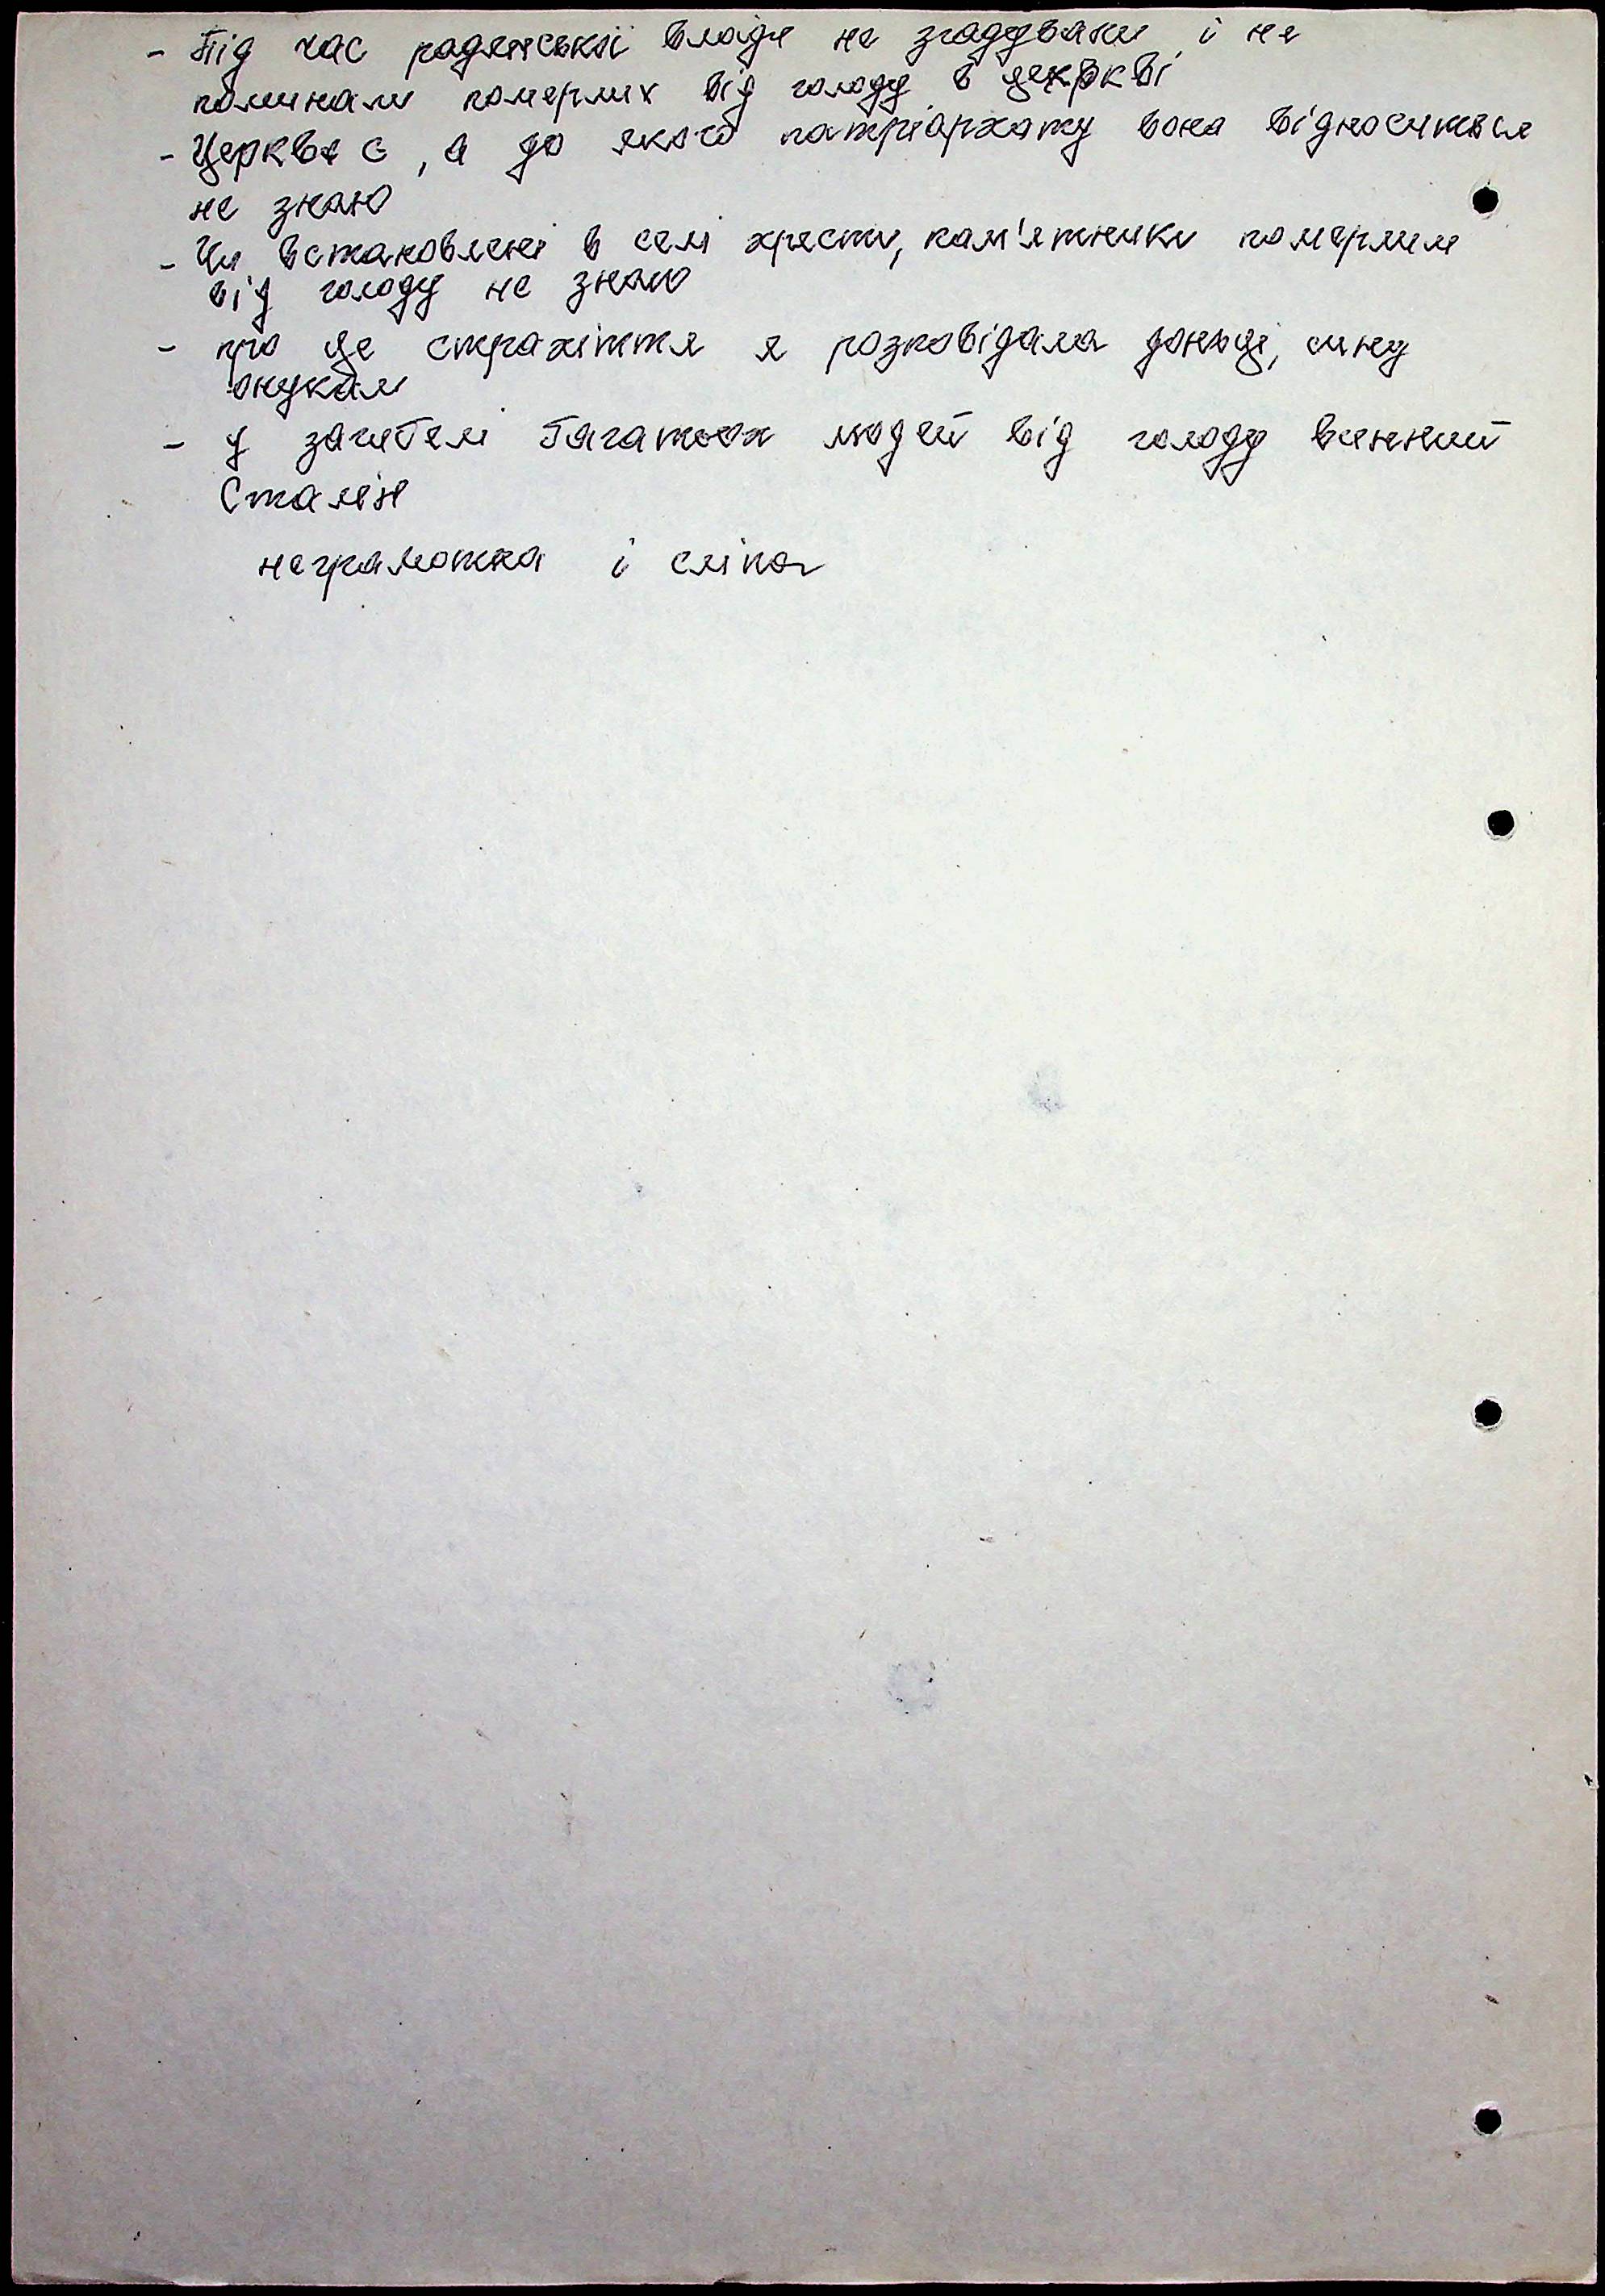 - Під час радянської влади не згадували і не
поминали померлих від голоду в церкві
- Церква є, а до якого патріархату вона відноситься
не знаю
- Чи встановлені в селі хрести, пам'ятники померлим
від голоду не знаю
- про це страхіття я розповідала доньці, сину
онукам
- у загибелі багатьох людей від голоду винний
Сталін
неграмотна і сліпа